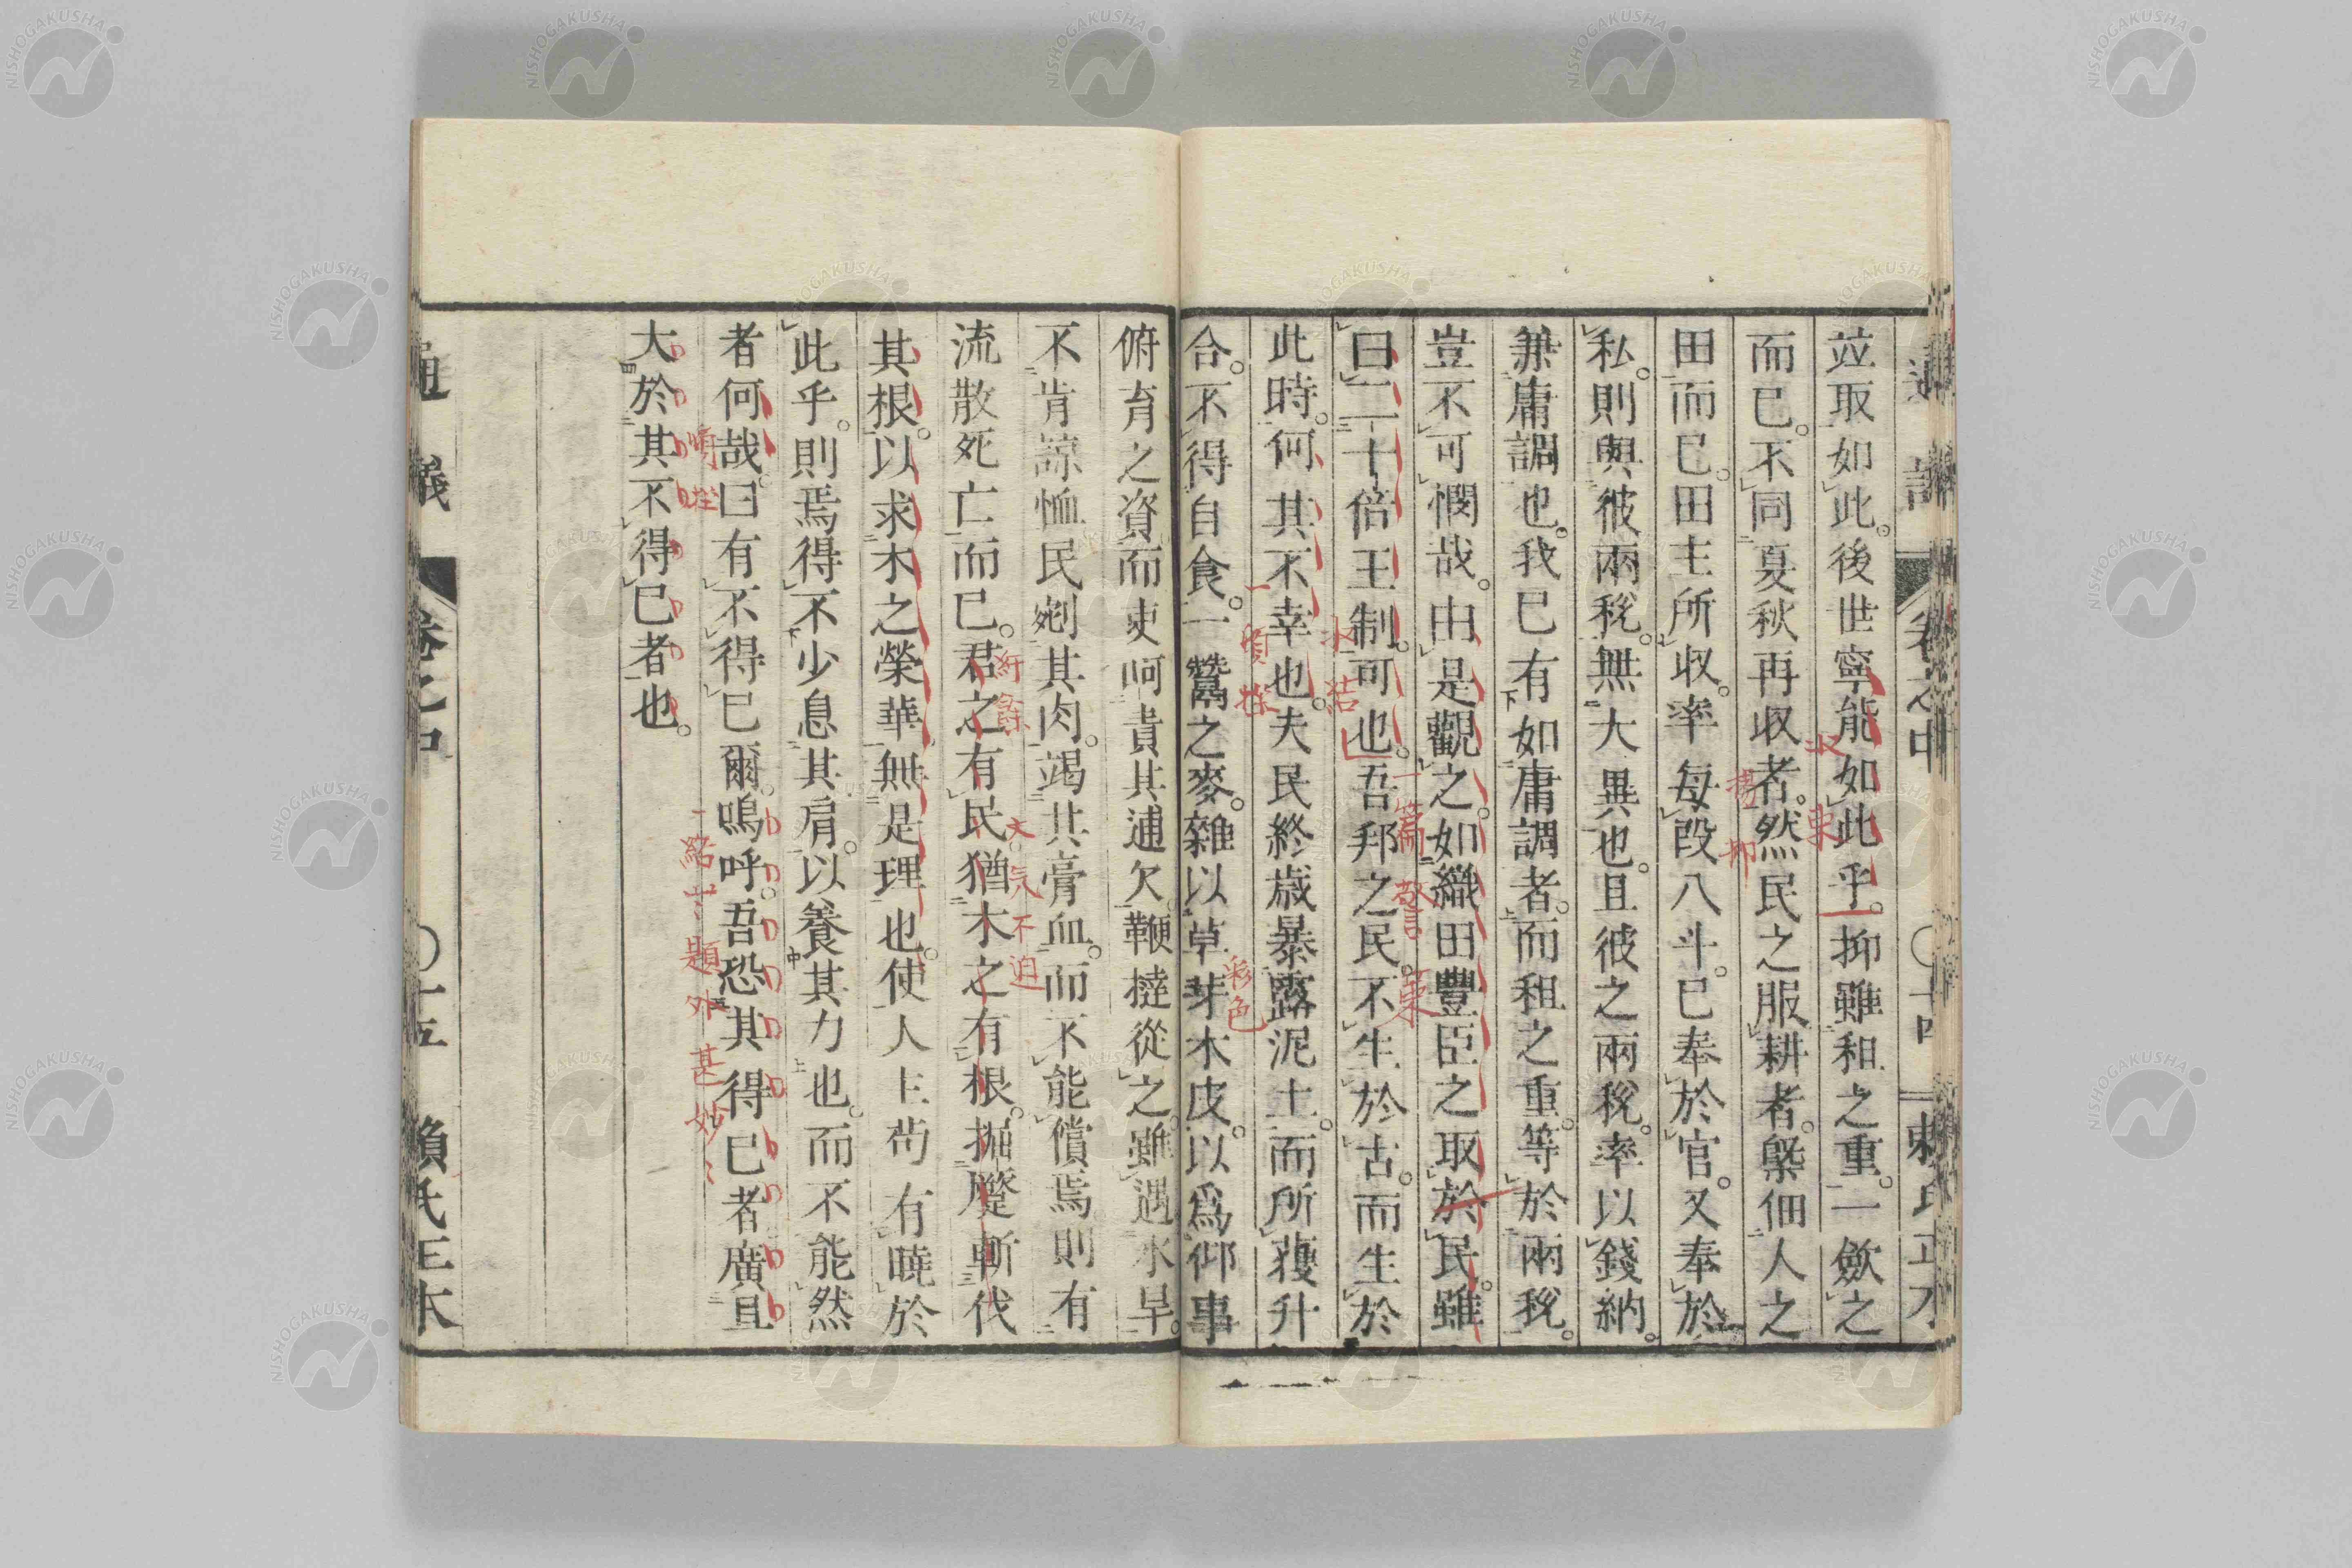 通議 卷之中 ○十四 賴氏正本
竝取如此。後世寧能如此乎。抑雖和之重。一斂之
而已。不同夏秋再收者。然民之服耕者。槩佃人之
田而已。田主所收。率每段八斗。已奉於官。又奉於
私。則與彼兩稅。無大異也。且彼之兩稅。率以錢納。
兼庸調也。我已有如庸調者。而租之重。等於兩稅。
豈不可憫哉。由是觀之。如織田豐臣之取於民。雖
曰二十倍王制。可也。吾邦之民。不生於古。而生於
此時。何其不幸也。夫民終歲暴露泥土。而所穫升
合。不得自食。一蠶之麥。雜以草芽木皮。以爲仰事
俯育之資。而吏呵責其逋欠。鞭撻從之。雖遇水旱。
不肯諒恤民。剜其肉。竭其膏血。而不能償焉。則有
流散死亡而已。君之有民。猶木之有根。掘蹷斬伐
其根。以求木之榮華。無是理也。使人主苟有曉於
此乎。則焉得不少息其肩。以養其力也。而不能然
者何哉。曰有不得已爾。嗚呼。吾恐其得已者廣且
大於其不得已者也。
通議 卷之中 ○十五 賴氏正本
收束
揚抑
一篇警策
小結
一頓挫
彩色
紆餘
文氣不迫
頓挫
一結 題外甚妙